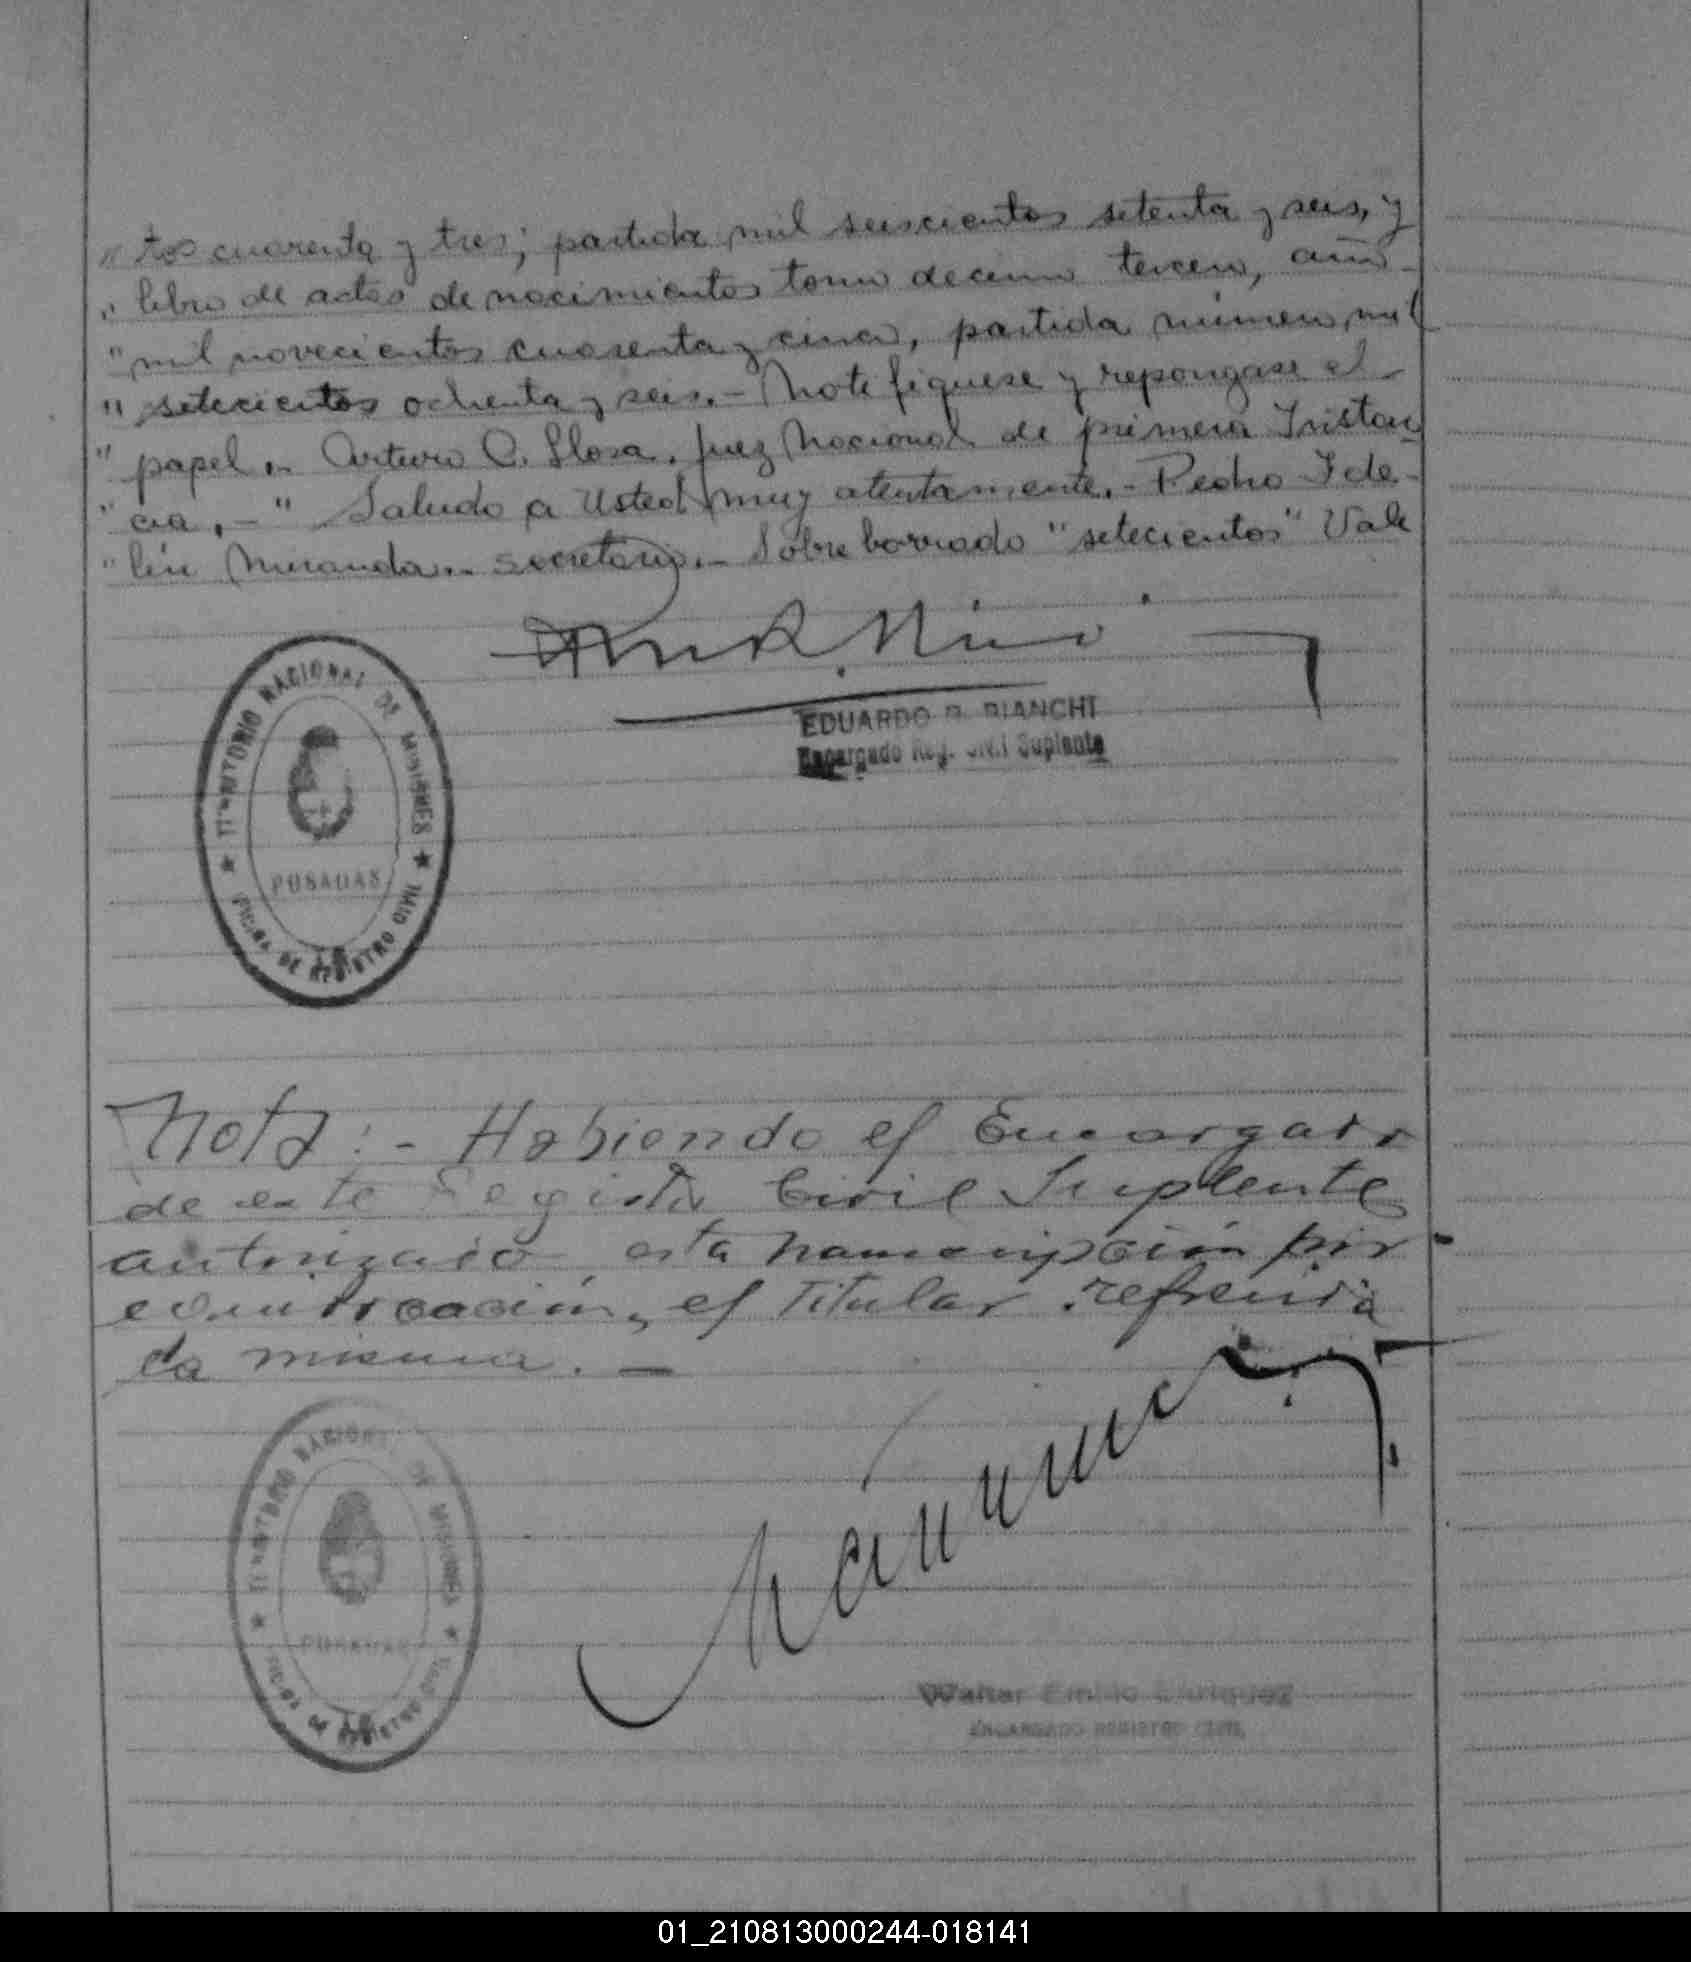 " tos cuarenta y tres; partida mil seiscientos setenta y seis, y
" libro de actas de nacimientos tomo decimo tercero, año
" mil novecientos cuarenta y cinco, partida número mil
" setecientos ochenta y seis.- Notifiquese y repongase el
" papel.- Arturo C. Llosa. Juez Nacional de primera Instan
" cia.-" Saludo a Usted muy atentamente.- Pedro Fide-
" lín Miranda.- secretario.- Sobre borrado "setecientos" Vale
EDUARDO R. BIANCHI
Encargado Reg. Civil Suplente
TERRITORIO NACIONAL DE MISIONES
POSADAS
OFICINA DE REGISTRO CIVIL
Nota:- Habiendo el Encargado
de este Registro Civil Suplente
autorizado esta transcripción por
el titular refrenda
la misma.-
TERRITORIO NACIONAL DE MISIONES
POSADAS
OFICINA DE REGISTRO CIVIL
Walter Emilio Enriquez
ENCARGADO REGISTRO CIVIL
01_210813000244-018141